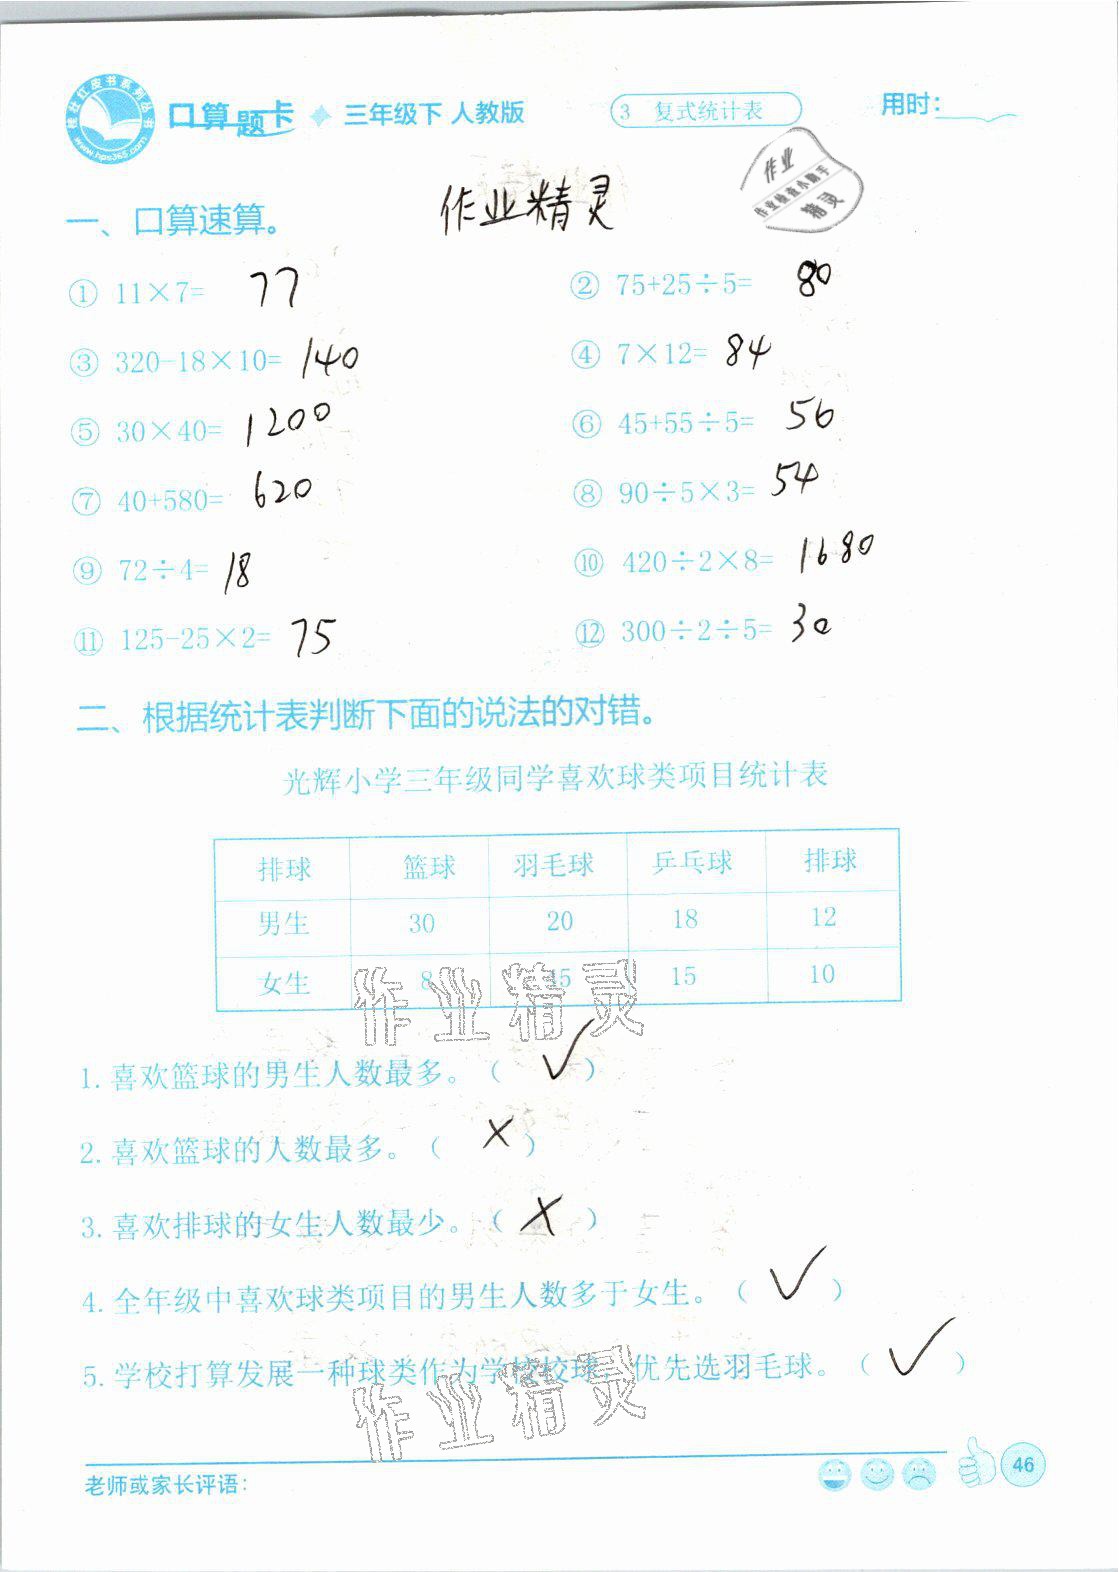 桂壮红皮书系列丛书
www.hps365.com
口算题卡 三年级下 人教版
3 复式统计表
用时:
作业
作业检查小助手
精灵
作业精灵
一、口算速算。
① 11×7= 77
② 75+25÷5= 80
③ 320-18×10= 140
④ 7×12= 84
⑤ 30×40= 1200
⑥ 45+55÷5= 56
⑦ 40+580= 620
⑧ 90÷5×3= 54
⑨ 72÷4= 18
⑩ 420÷2×8= 1680
⑪ 125-25×2= 75
⑫ 300÷2÷5= 30
二、根据统计表判断下面的说法的对错。
光辉小学三年级同学喜欢球类项目统计表
排球 篮球 羽毛球 乒乓球 排球
男生 30 20 18 12
女生 8 15 10
作业精灵
1. 喜欢篮球的男生人数最多。( ✓ )
2. 喜欢篮球的人数最多。( × )
3. 喜欢排球的女生人数最少。( × )
4. 全年级中喜欢球类项目的男生人数多于女生。( ✓ )
5. 学校打算发展一种球类作为学校校球，优先选羽毛球。( ✓ )
作业精灵
老师或家长评语:
46